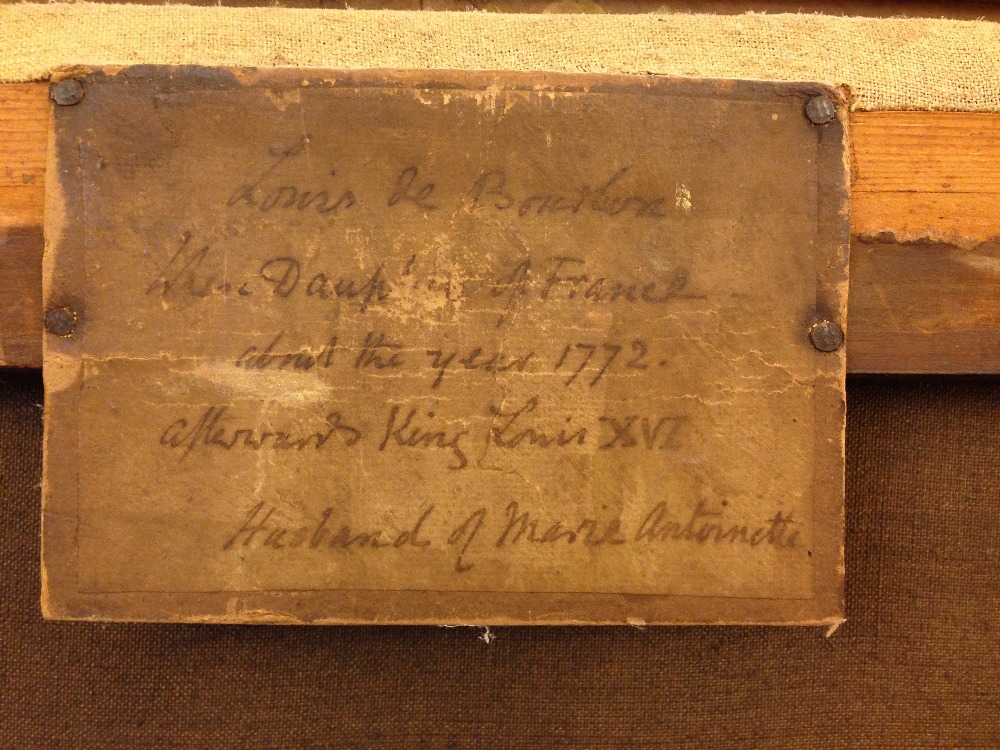 Louis de Bourbon
then Dauphin of France
about the year 1772.
afterwards King Louis XVI
Husband of Marie Antoinette